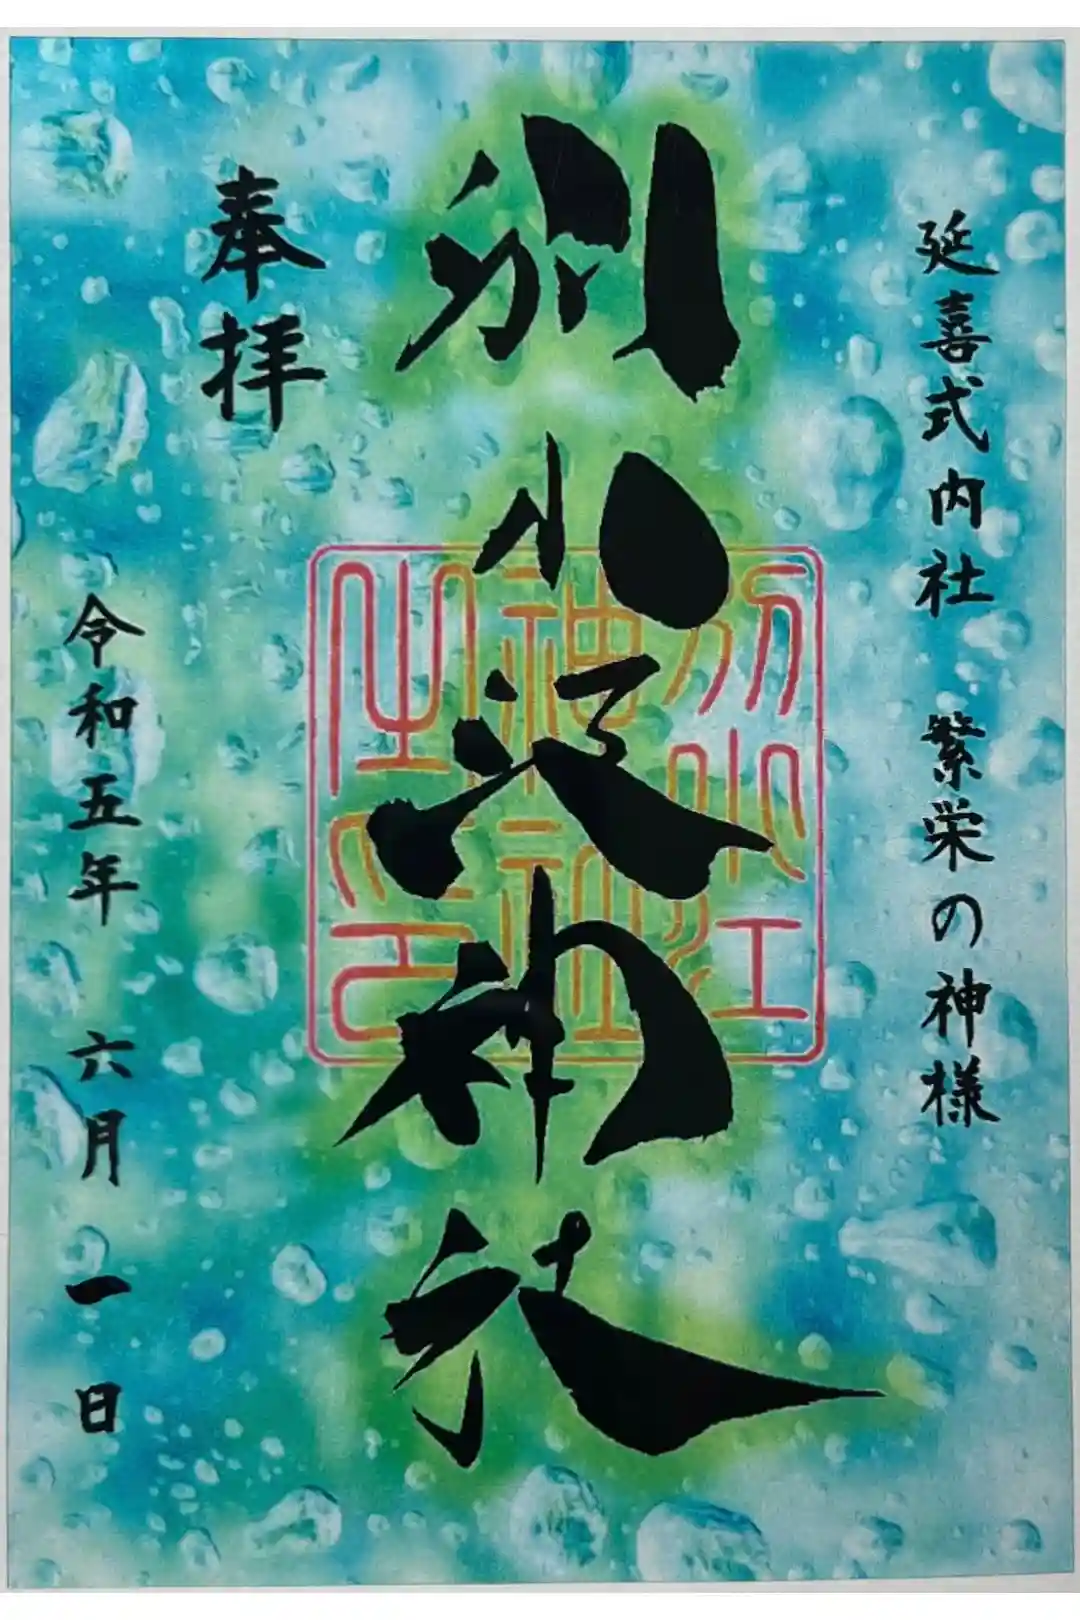 延喜式内社 繁栄の神様
別小江神社
別小江
神社
之印
奉拝
令和五年 六月 一日